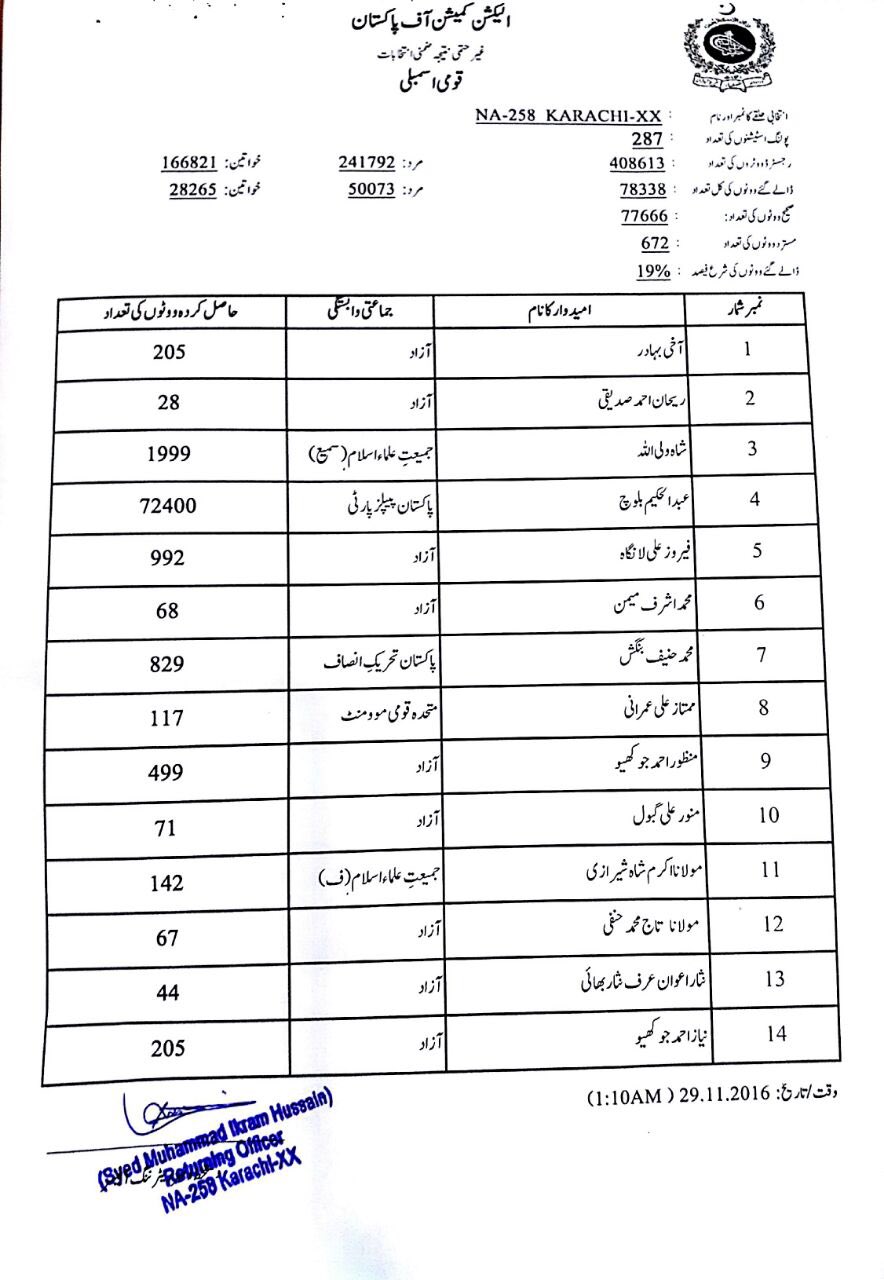 الیکشن کمیشن آف پاکستان
غیر حتمی نتیجہ ضمنی انتخابات
قومی اسمبلی
انتخابی حلقے کا نمبر اور نام : NA-258 KARACHI-XX
پولنگ اسٹیشنوں کی تعداد : 287
رجسٹرڈ ووٹروں کی تعداد : 408613 مرد: 241792 خواتین: 166821
ڈالے گئے ووٹوں کی کل تعداد : 78338 مرد: 50073 خواتین: 28265
صحیح ووٹوں کی تعداد: : 77666
مسترد ووٹوں کی تعداد : 672
ڈالے گئے ووٹوں کی شرح فیصد : 19%
نمبر شمار امیدوار کا نام جماعتی وابستگی حاصل کردہ ووٹوں کی تعداد
1 آخی بہادر آزاد 205
2 ریحان احمد صدیقی آزاد 28
3 شاہ ولی اللہ جمیعتِ علماء اسلام (سمیع) 1999
4 عبدالحکیم بلوچ پاکستان پیپلز پارٹی 72400
5 فیروز علی لانگاہ آزاد 992
6 محمد اشرف میمن آزاد 68
7 محمد حنیف بنگش پاکستان تحریکِ انصاف 829
8 ممتاز علی عمرانی متحدہ قومی موومنٹ 117
9 منظور احمد جوکھیو آزاد 499
10 منور علی گبول آزاد 71
11 مولانا اکرم شاہ شیرازی جمیعتِ علماء اسلام (ف) 142
12 مولانا تاج محمد حنفی آزاد 67
13 نثار اعوان عرف نثار بھائی آزاد 44
14 نیاز احمد جوکھیو آزاد 205
وقت/تاریخ: 29.11.2016 (1:10AM)
(Syed Muhammad Ikram Hussain)
Returning Officer
NA-258 Karachi-XX